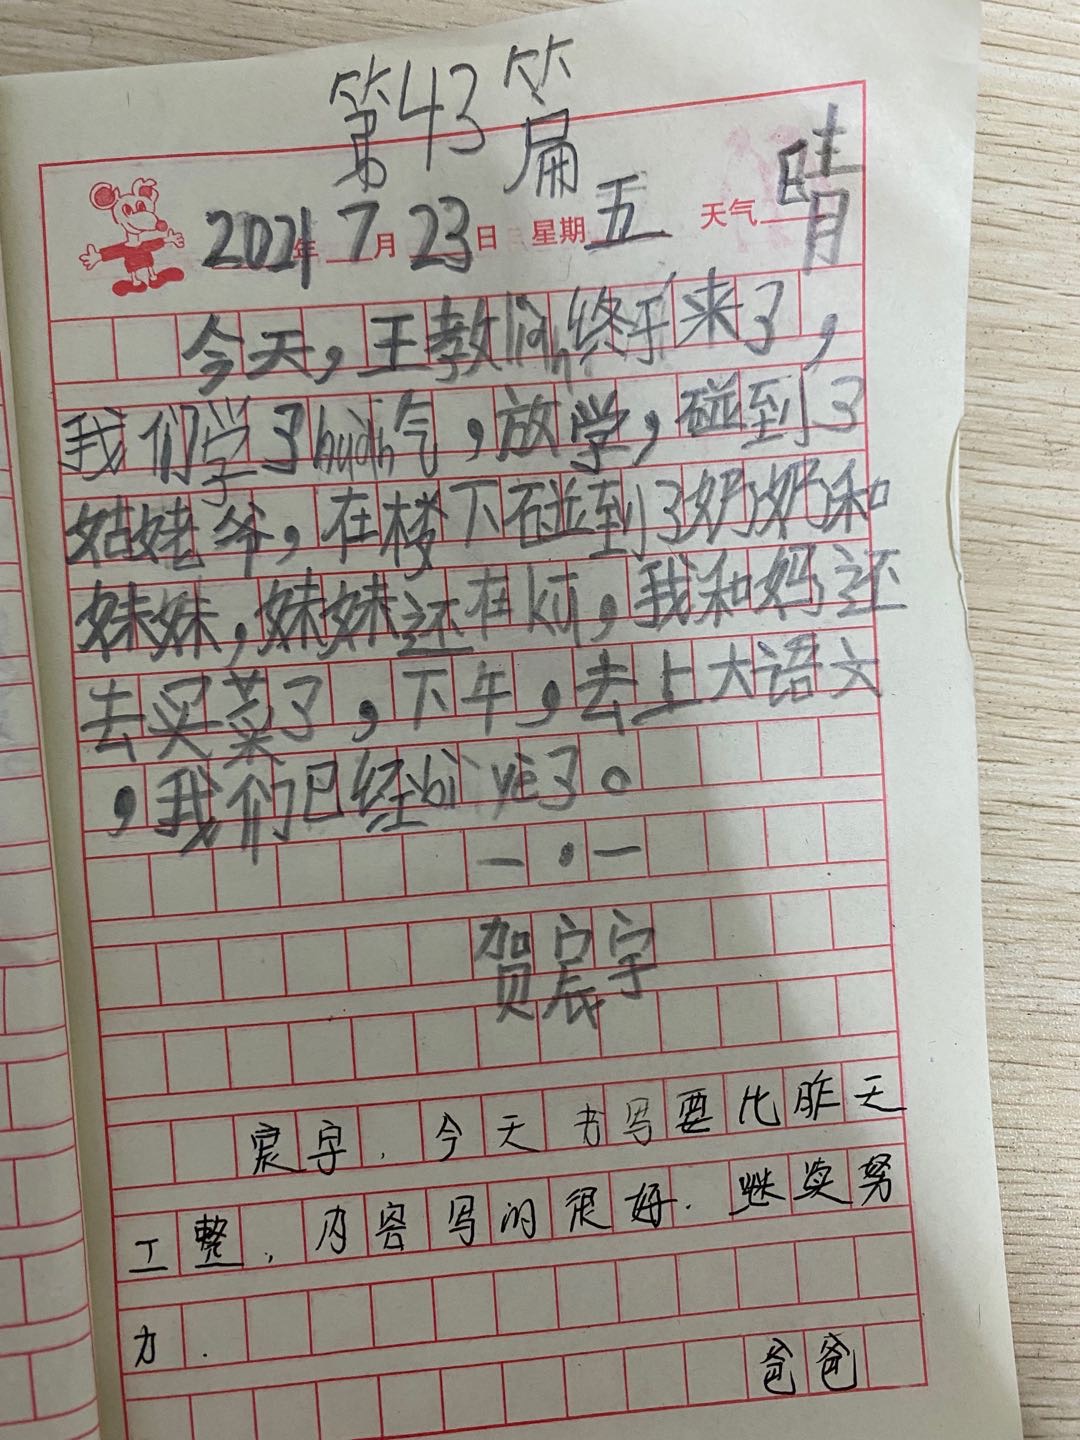 第43篇
2021年7月23日 星期五 天气晴
今天,王教liàn终于来了,
我们学了huàn气,放学,碰到了
姑姥爷,在楼下碰到了奶奶和
妹妹,妹妹还在kū,我和妈还
去买菜了,下午,去上大语文
,我们已经bì yè了。
一·一
贺宸宇
宸宇,今天书写要比昨天
工整,内容写的很好.继续努
力.
爸爸